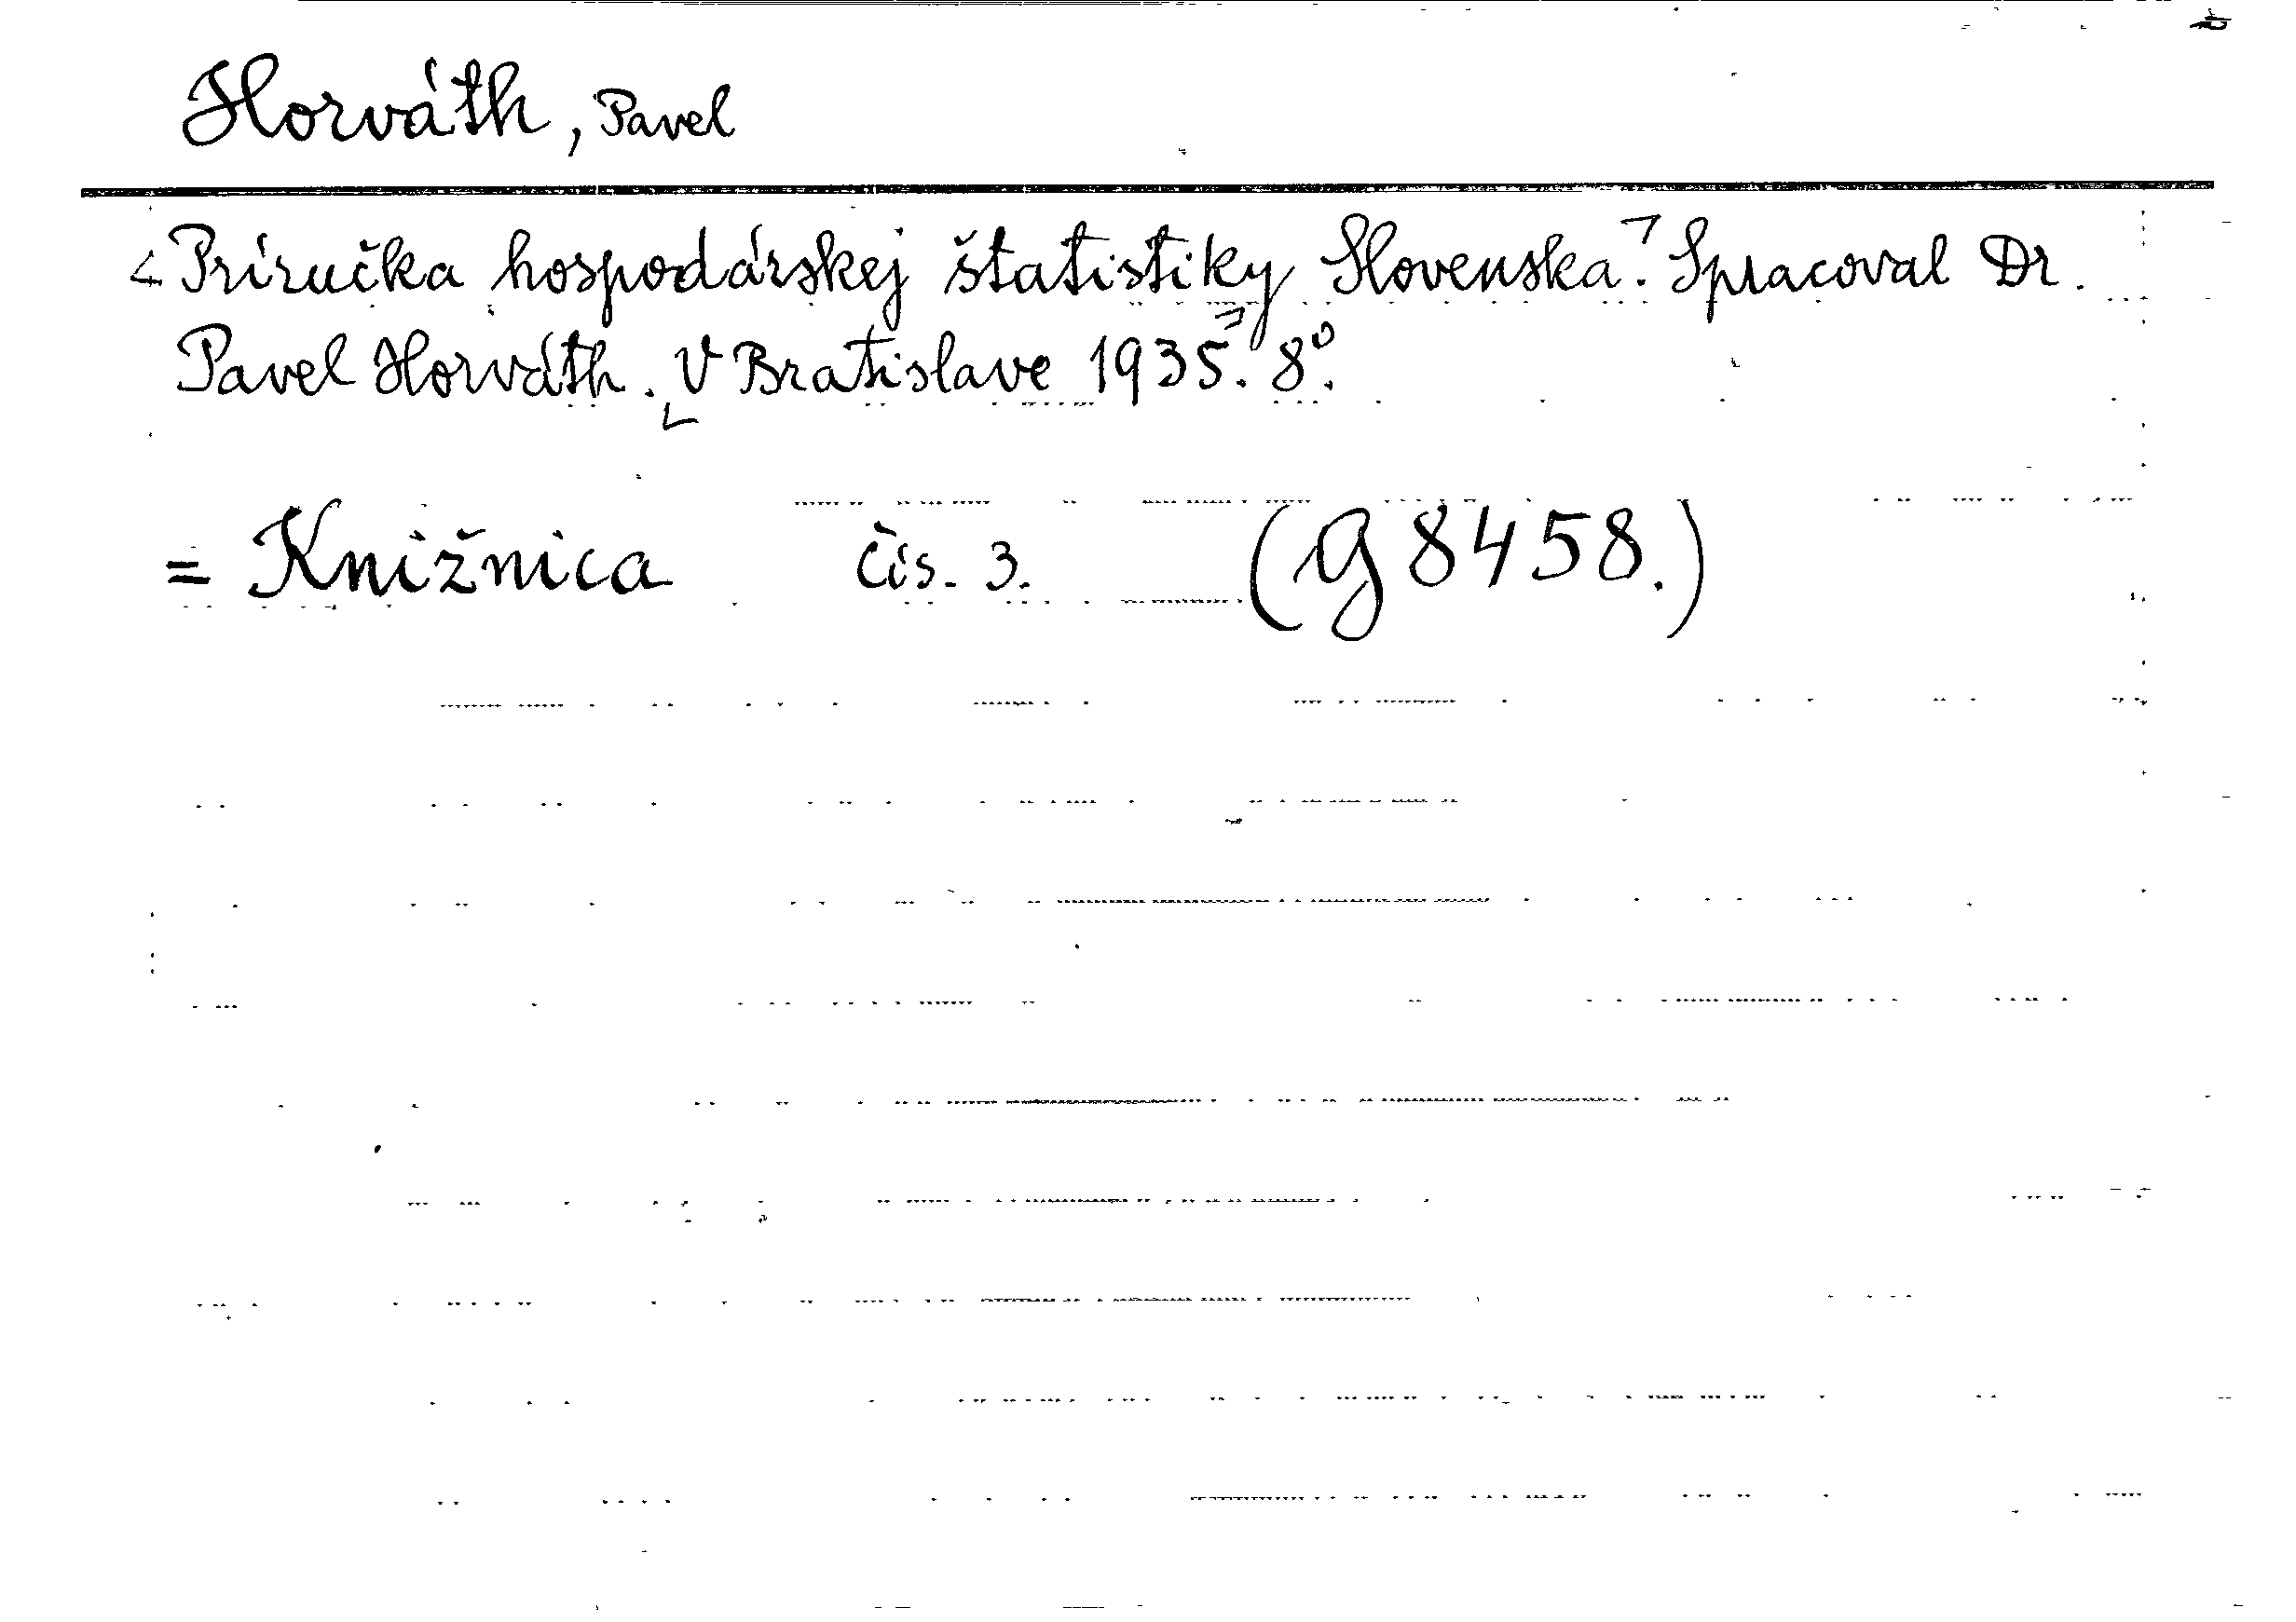 Horváth, Pavel
Príručka hospodárskej štatistiky Slovenska. Spracoval Dr.
Pavel Horváth. V Bratislave 1935. 8°.
= Knižnica čís. 3. (G 8458.)